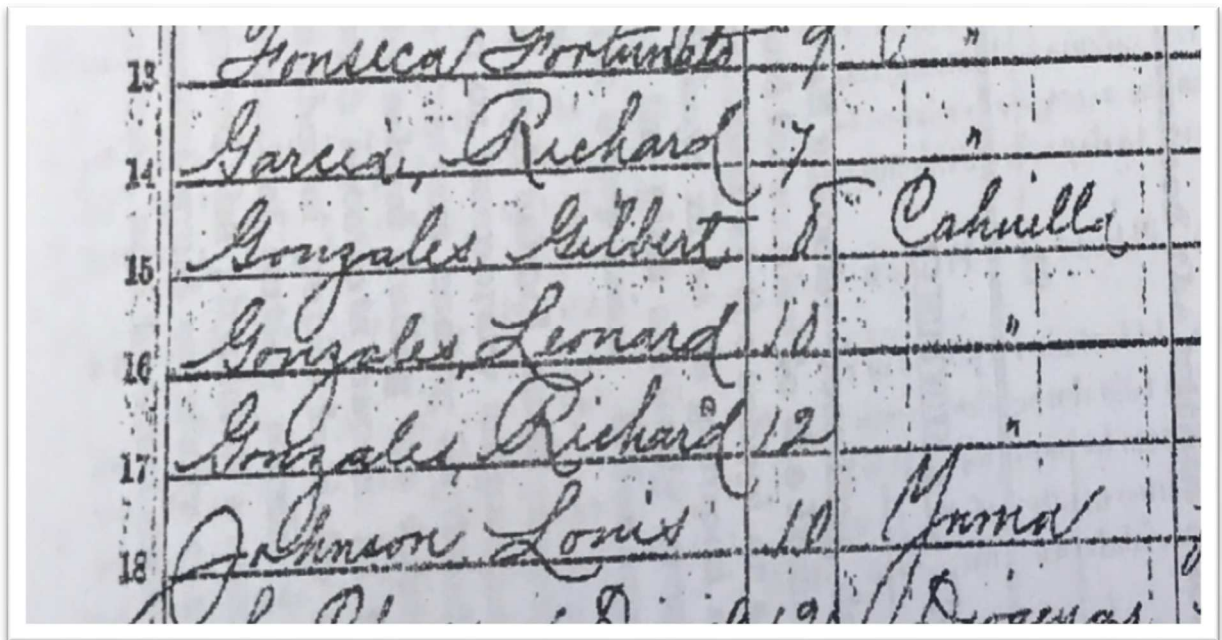 13 Fonseca, Fortunato 9 "
14 Garcia, Richard 7 "
15 Gonzales, Gilbert 8 Cahuilla
16 Gonzales, Leonard 10 "
17 Gonzales, Richard 12 "
18 Johnson, Louis 10 Yuma